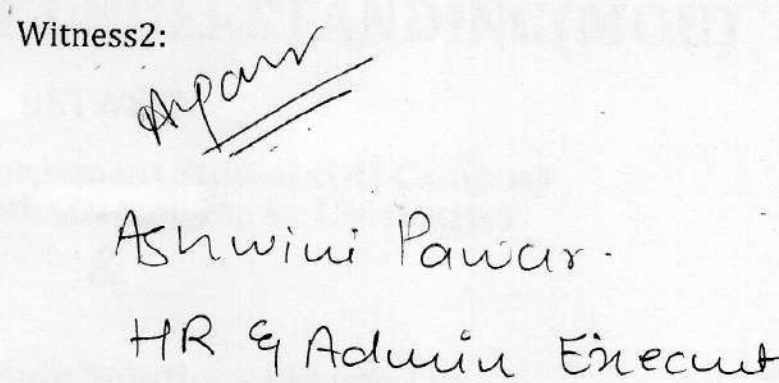 Witness2:
Apawar
Ashwini Pawar.
HR & Admin Execut